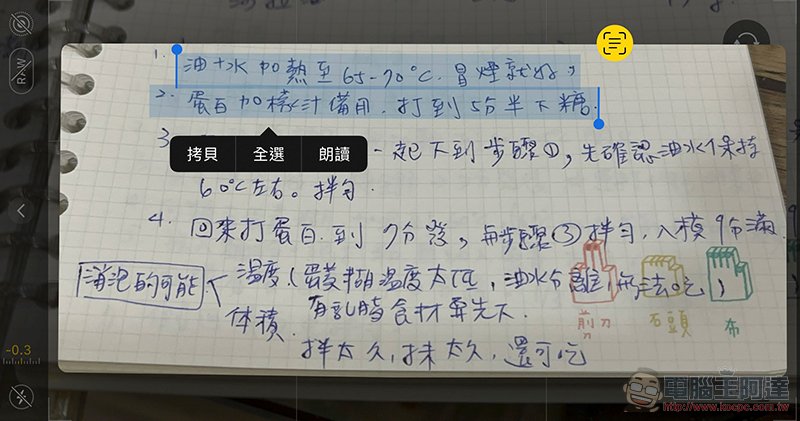 RAW
1. 油+水加熱至65-70°C. 冒煙就好,
2. 蛋白加檸汁備用. 打到5分半下糖.
拷貝 全選 朗讀
3. 一起下到步驟①, 先確認油水保持
60°C左右。拌勻.
4. 回來打蛋白. 到7分發, 與步驟③拌勻, 入模9分滿.
消泡的可能
溫度(蛋黃糊溫度太低, 油水分離, 無法吃,
有乳脂食材要先下.
剪刀 石頭 布
體積.
拌太久, 抹太久, 還可吃
-0.3
電腦王阿達
http://www.kocpc.com.tw